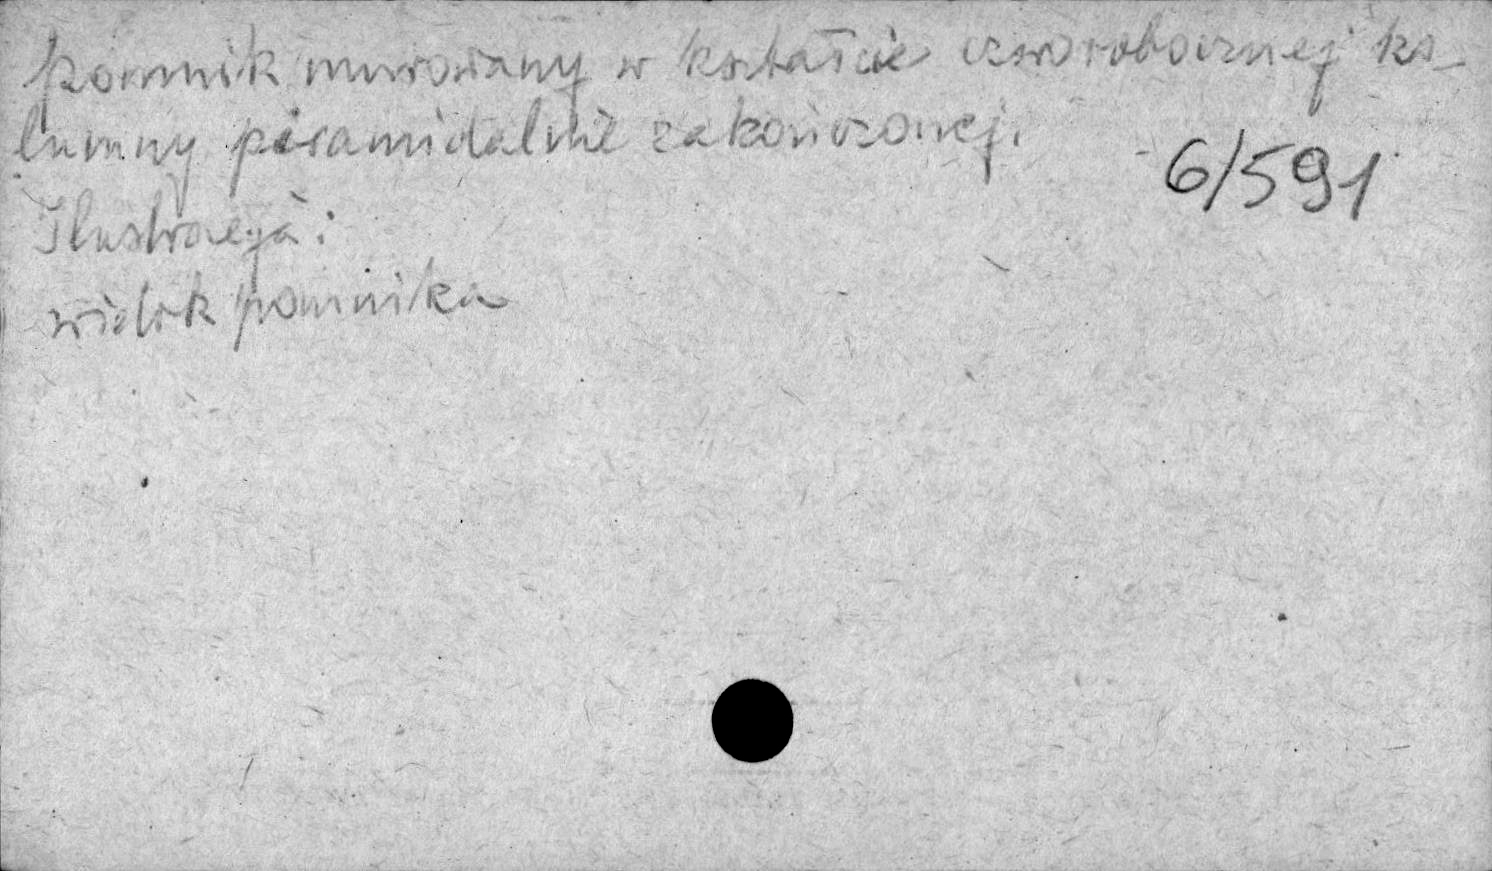 pomnik murowany w kształcie czworobocznej ko-
lumny piramidalnie zakończonej.
6/591
Ilustracja:
widok pomnika